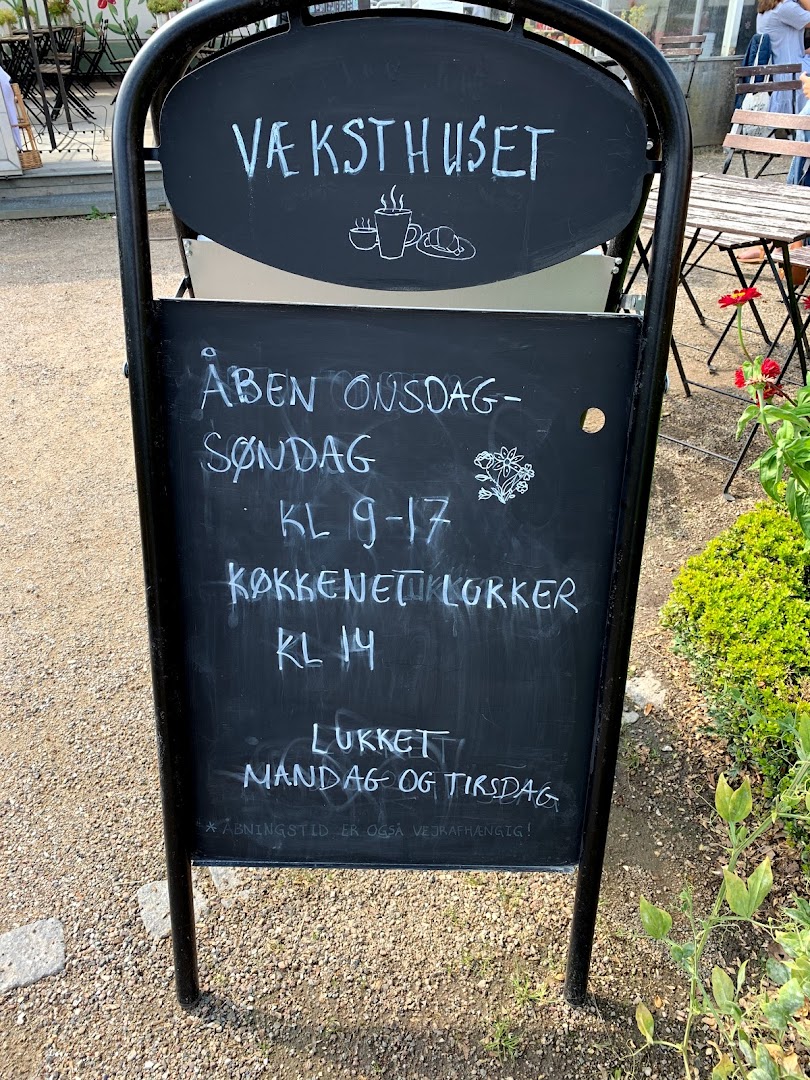 VÆKSTHUSET
ÅBEN ONSDAG-
SØNDAG
KL 9-17
KØKKENET LUKKER
KL 14
LUKKET
MANDAG OG TIRSDAG
* ÅBNINGSTID ER OGSÅ VEJRAFHÆNGIG!